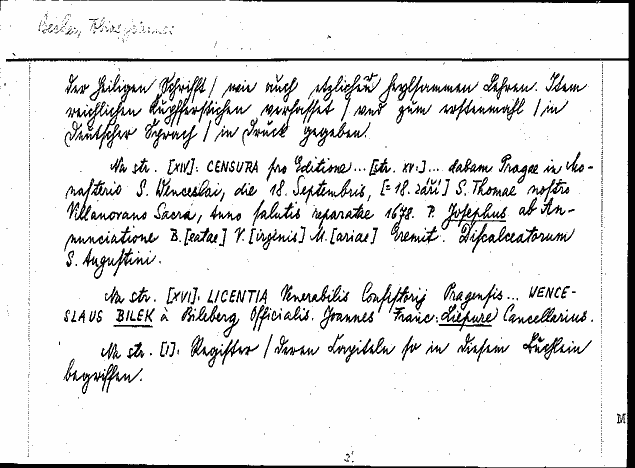 Becker, Tobias Joannes
der Heiligen Schrifft / wie auch etzlichen heylsammen Lehren. Item
reichlichen Kupfferstichen verfasset / und zum erstenmahl / in
Deutscher Sprach / in Druck gegeben.
Na str. [XIV]: CENSURA pro Editione... [str. XV:]... dabam Pragae in Mo-
nasterio S. Wenceslai, die 18. Septembris, [= 18. září] S. Thomae nostro
Villanovano Sacra, Anno salutis reparatae 1678. P. Josephus ab An-
nunciatione B.[eatae] V.[irginis] M.[ariae] Eremit. Discalceatorum
S. Augustini.
Na str. [XVI]: LICENTIA Venerabilis Consistorij Pragensis... WENCE-
SLAUS BILEK à Bileberg Officialis. Joannes Franc: Liepure Cancellarius.
Na str. [1]: Register / deren Capiteln so in diesem Büchlein
begriffen.
M
2.